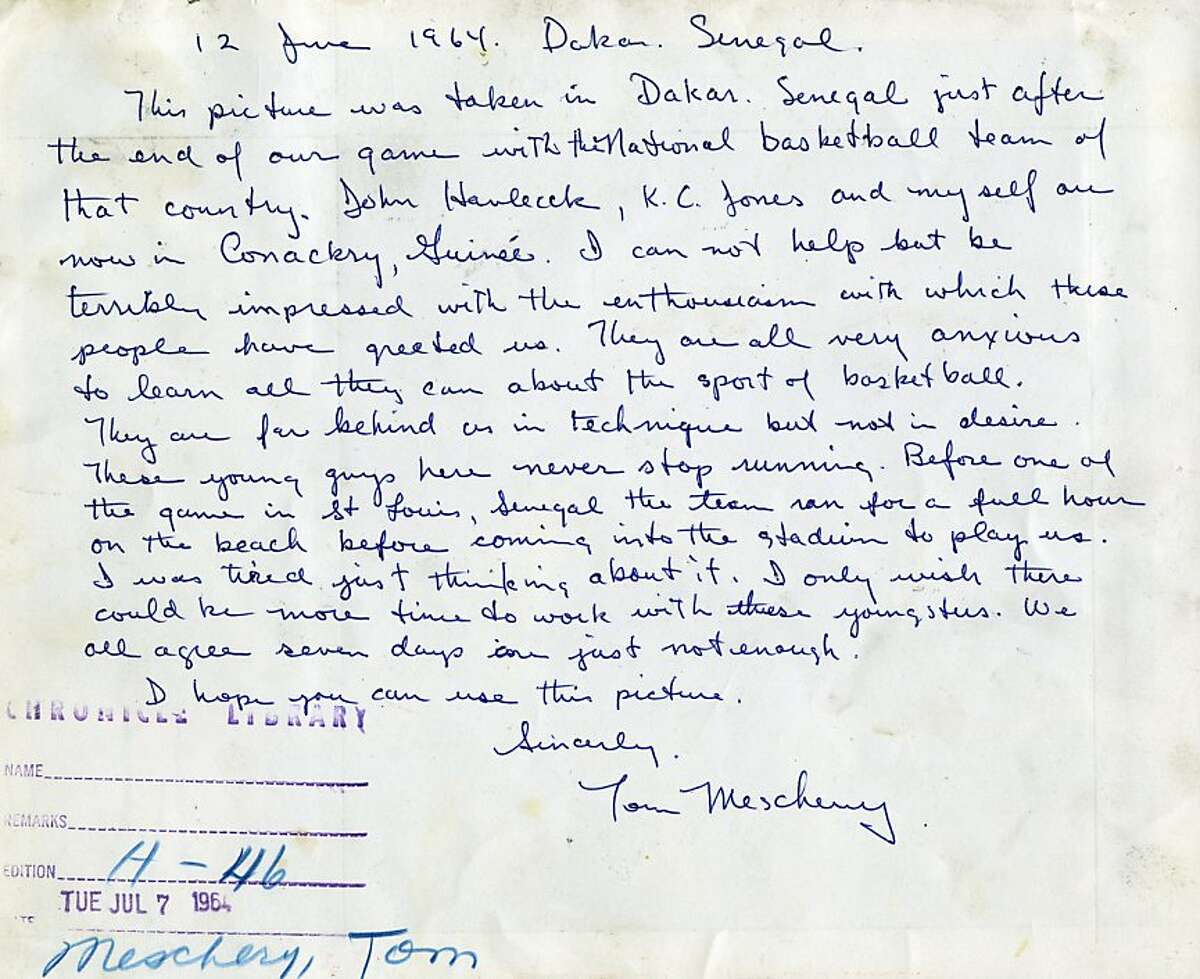 12 June 1964. Dakar. Senegal.
This picture was taken in Dakar. Senegal just after
the end of our game with the National basketball team of
that country. John Havlecek, K.C. Jones and my self are
now in Conackry, Guinée. I can not help but be
terribly impressed with the enthousiasm with which these
people have greeted us. They are all very anxious
to learn all they can about the sport of basketball.
They are far behind us in technique but not in desire.
These young guys here never stop running. Before one of
the game in St Louis, Senegal the team ran for a full hour
on the beach before coming into the stadium to play us.
I was tired just thinking about it. I only wish there
could be more time to work with these youngsters. We
all agree seven days are just not enough.
I hope you can use this picture.
Sincerly.
Tom Meschery
CHRONICLE LIBRARY
NAME
REMARKS
EDITION H-46
TUE JUL 7 1964
Meschery, Tom